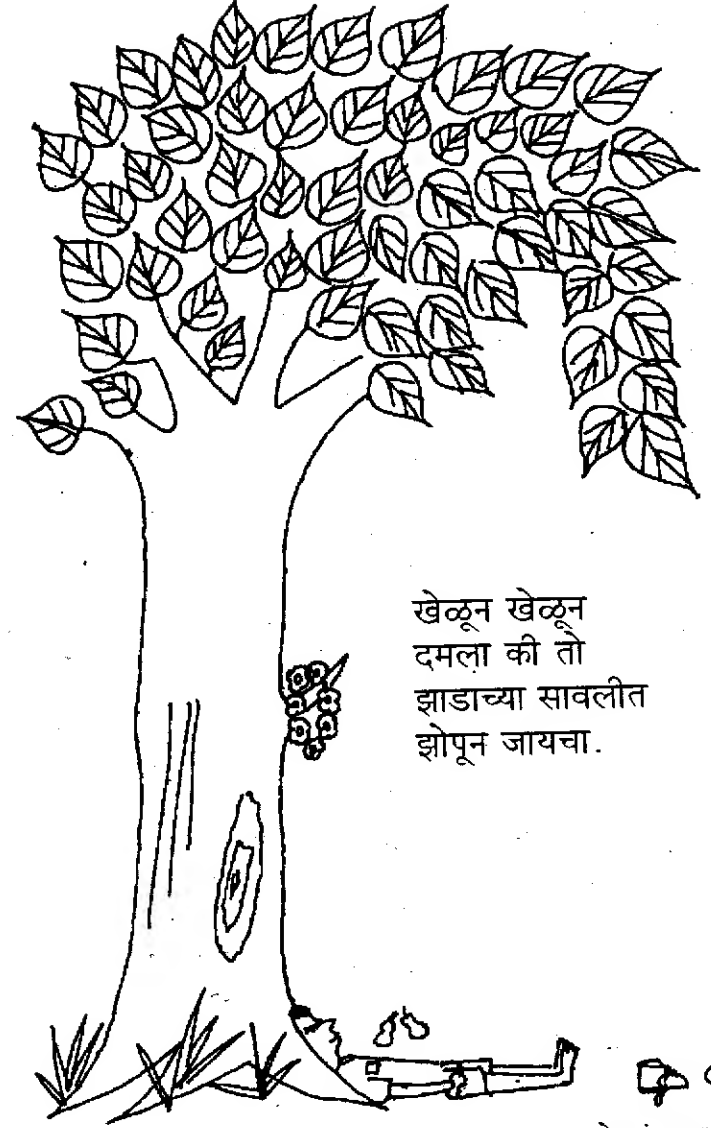 खेळून खेळून
दमला की तो
झाडाच्या सावलीत
झोपून जायचा.